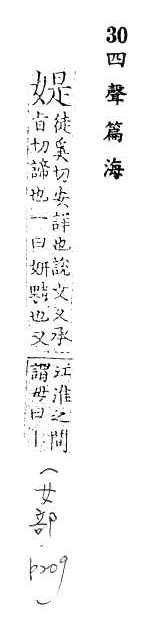 30四聲篇海
媞徒奚切安詳也說文又承
旨切諦也一曰妍黠也又
江淮之間
謂母曰
(女部
p209)